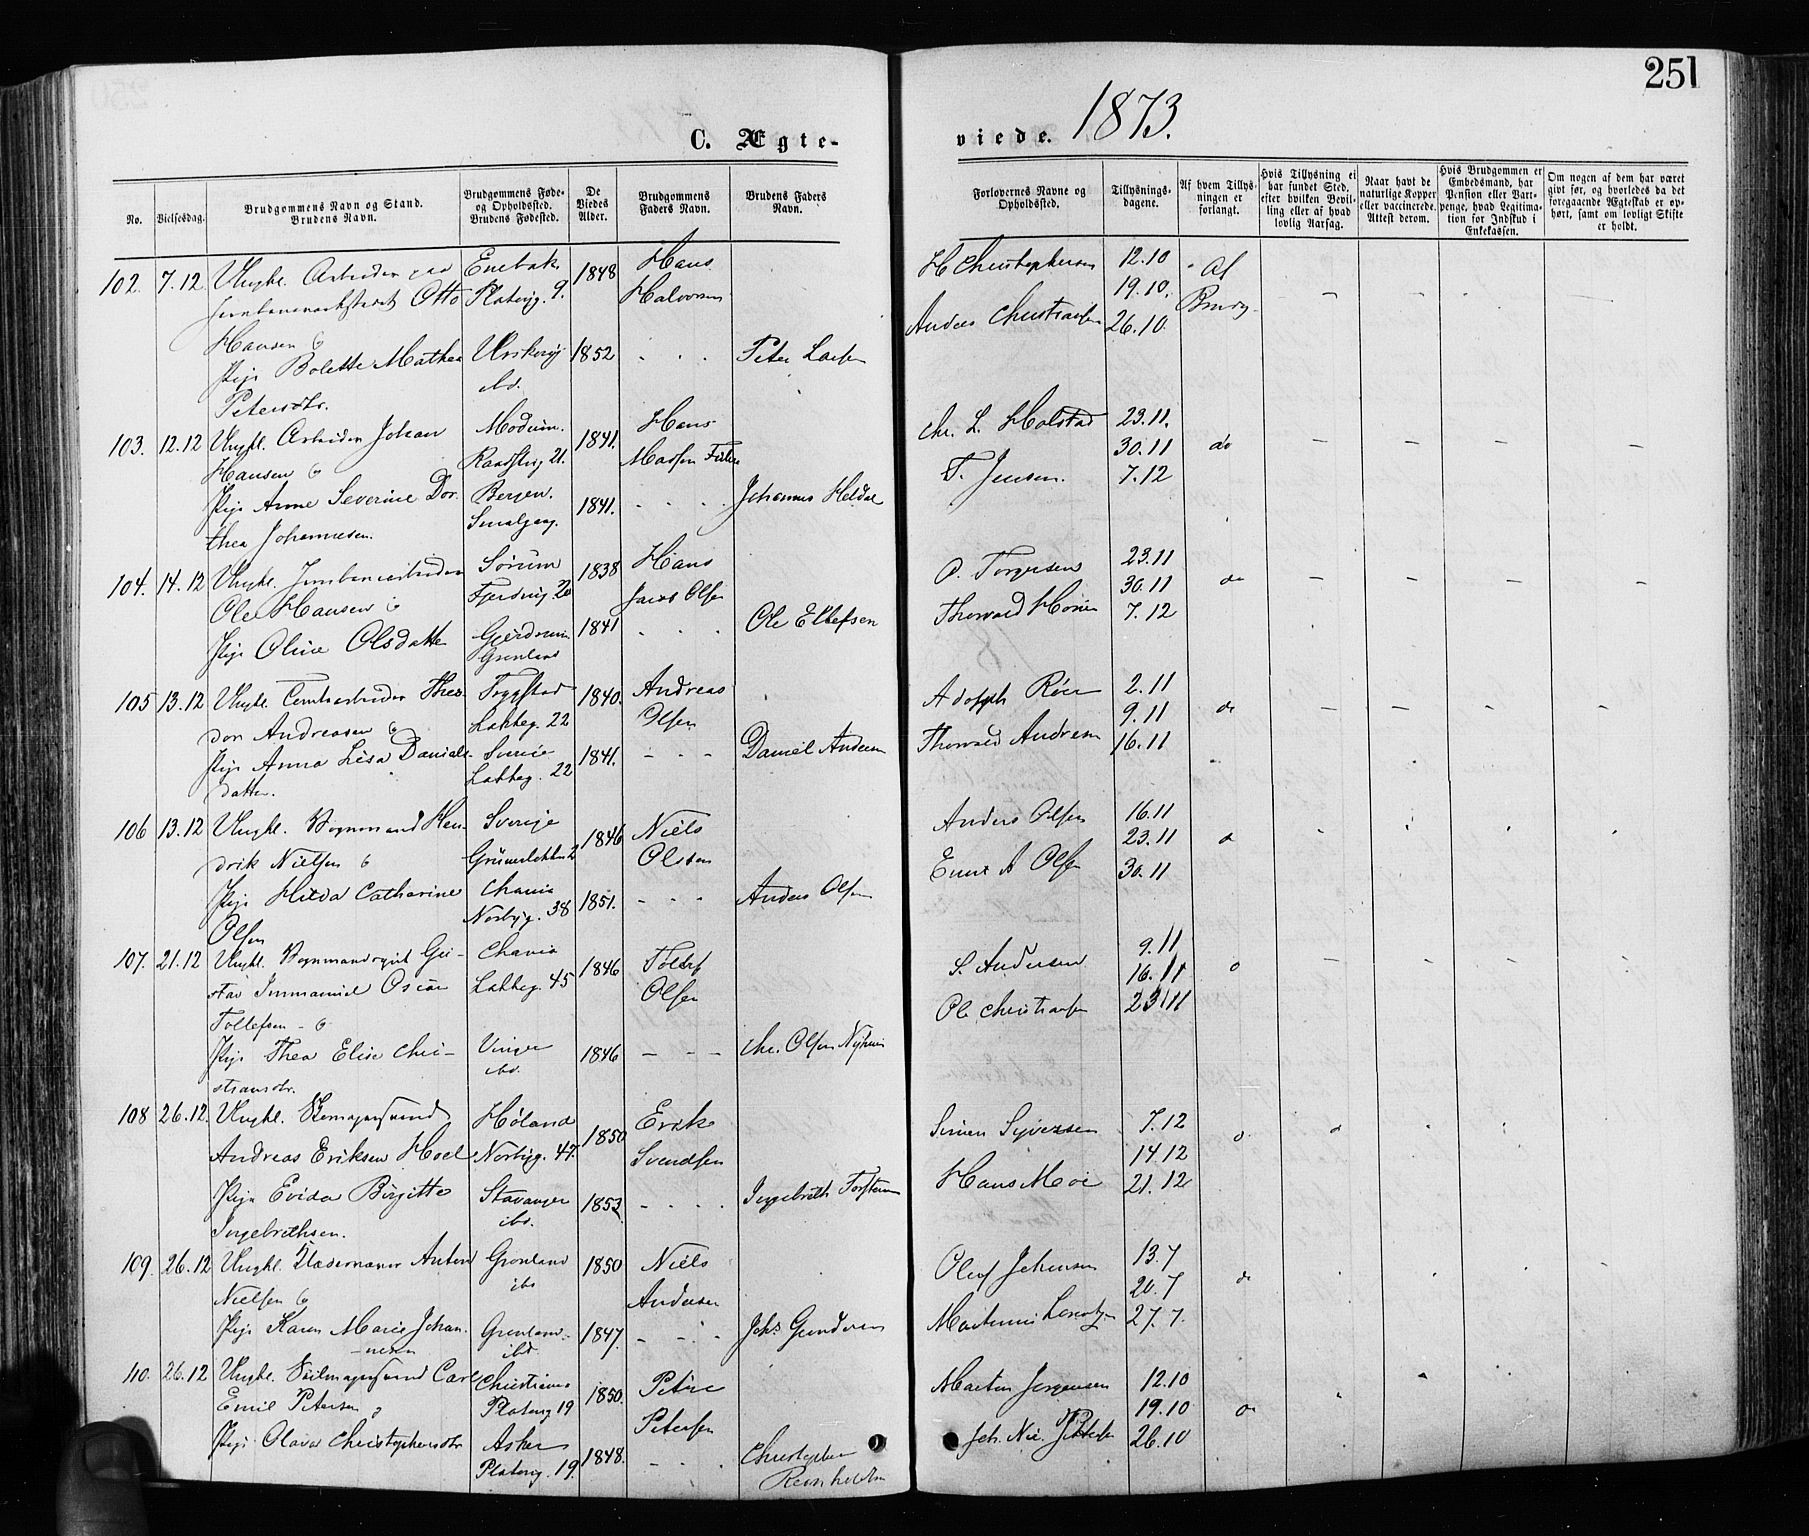 251
C. Ægte-
viede. 1873.
No.
Vielsesdag.
Brudgommens Navn og Stand.
Brudens Navn.
Brudgommens Føde-
og Opholdsted.
Brudens Fødested.
De
Viedes
Alder.
Brudgommens
Faders Navn.
Brudens Faders
Navn.
Forlovernes Navne og
Opholdsted.
Tillysnings-
dagene.
Af hvem Tillys-
ningen er
forlangt.
Hvis Tillysning ei
har fundet Sted,
efter hvilken Bevil-
ling eller af hvad
lovlig Aarsag.
Naar havt de
naturlige Kopper
eller vaccinerede.
Attest derom.
Hvis Brudgommen er
Embedsmand, har
Pension eller Vart-
penge, hvad Legitima-
tion for Indskud i
Enkekassen.
Om nogen af dem har været
givt før, og hvorledes da det
foregaaende Ægteskab er op-
hørt, samt om lovligt Skifte
er holdt.
102. 7.12 Ungkl. Arbeider paa Enebak 1848 Hans H Christophersen 12.10 Af
Jernbaneværkstedet Otto Platoug. 9. Halvorsen 19.10. Brudg.
Hansen & Anders Christiansen 26.10.
Pige Bolette Mathea Urskoug 1852 Peter Larsen
Petersdtr. ibd.
103. 12.12 Ungkl. Arbeider Johan Modum. 1841. Hans Chr. L. Holstad 23.11. do
Hansen & 21. 30.11
Pige Anne Severine Dor- Bergen. 1841. Johannes Heldal T. Jensen. 7.12
thea Johannesen. Smalgang.
104. 14.12 Ungkl. Jernbanearbeider Sørum 1838 Hans O. Torgersen 23.11 do
Ole Hansen & Fjerding. 20 Jacob Olsen 30.11
Pige Oline Olsdatter Gjerdrum 1841 Ole Ellefsen Thorvald 7.12
Grønland
105 13.12 Ungkl. Theo- Trygstad 1840. Andreas Adolph 2.11 do
dor Andreasen & Lakkeg. 22 Olsen 9.11
Pige Anna Lisa Daniels- Sverige 1841. Daniel Thorvald Andresen 16.11
datter. Lakkeg. 22
106 13.12 Ungkl. Vognmand Hen- Sverige 1846 Niels Anders Olsen 16.11
drik Nielsen & Grünerløkken 2 Olsson 23.11
Pige Hilda Catharine Chania 1851. Anders Olsen Olsen 30.11
Olsen Norbyg. 38
107. 21.12 Ungkl. Gu- Chania 1846 Tollef S. Andersen 9.11
stav Immanuel Oscar Lakkeg. 45 Olsen 16.11
Tollefsen & Ole Christiansen 23.11
Pige Thea Elise Chri- Vinger 1846 Chr. Olsen
stiansdtr. ibd.
108 26.12. Ungkl. Høland 1850 Erik Simen Syversen 7.12
Andreas Eriksen Hoel Norbyg. 47. Svendsen 14.12
Pige Evida Birgitte Stavanger 1853. Ingebreth Hans Moe 21.12
Ingebrethsen. ibd.
109. 26.12 Ungkl. Anton Grønland 1850 Niels Oluf Johansen 13.7 do
Nielsen & ibd Andersen 20.7
Pige Karen Marie Johan- Grønland 1847. Johs Gundersen 27.7.
nesen ibd.
110. 26.12 Ungkl. Carl Christiania 1850. Peter Morten Jørgensen 12.10 do
Emil Petersen & Platoug 19 Petersen 19.10
Pige Olava Christophersdtr. Asker 1848. Christopher Joh. 26.10
Platoug. 19.